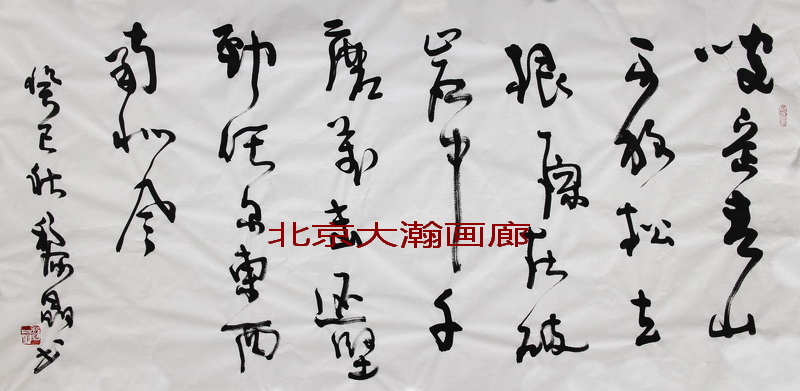 咬定青山
不放松立
根原在破
岩中千
磨萬击還堅
勁任尔東西
南北风
癸巳秋黎晶书
北京大瀚画廊